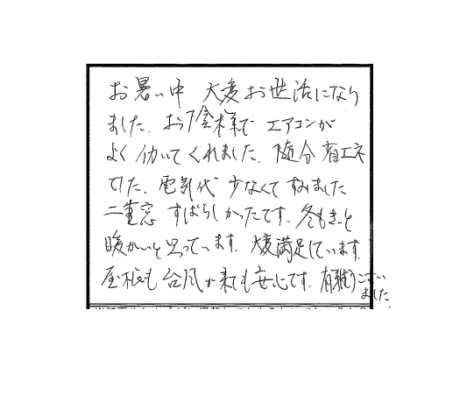 お暑い中 大変お世話になり
ました。お陰様で エアコンが
よく 働いて くれました。随分 省エネ
でした。電気代 少なくて すみました
二重窓 すばらしかったです。冬もきっと
暖かいと思っています。大変満足しています。
屋根も 台風が来ても安心です。有難うござい
ました